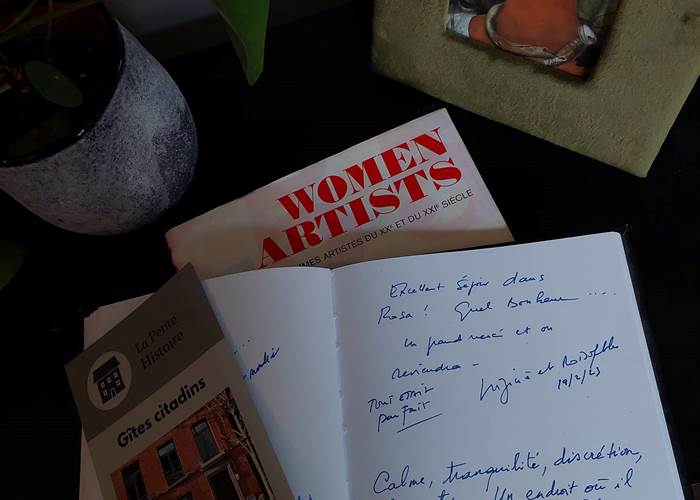 WOMEN
ARTISTS
MES ARTISTES DU XXᵉ ET DU XXIᵉ SIÈCLE
La Petite
Histoire
Gîtes citadins
Excellent Séjour dans
Rosa ! Quel Bonheur ....
Un grand merci et on
reviendra -
Tout était
parfait
et Rodolphe
19/2/23
Calme, tranquilité, discrétion,
Un endroit où il